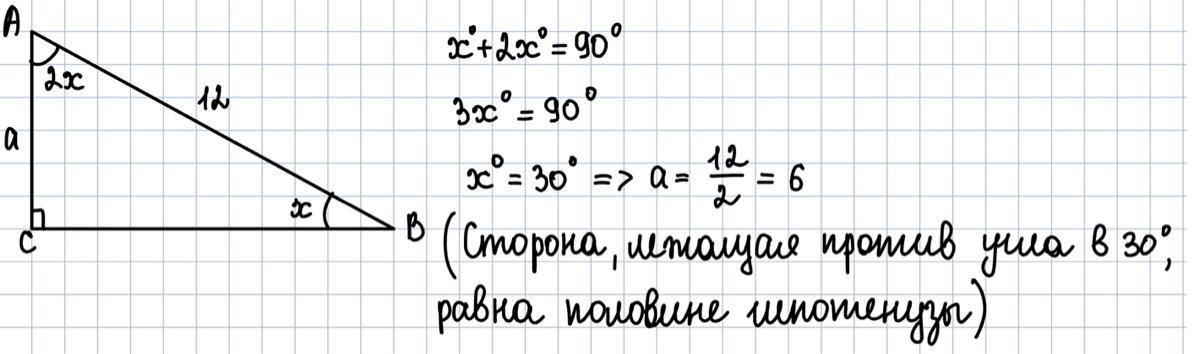 A
2x
12
a
x
C
B
x°+2x°=90°
3x°=90°
x°=30° => a= 12/2 = 6
(Сторона, лежащая против угла в 30°,
равна половине гипотенузы)